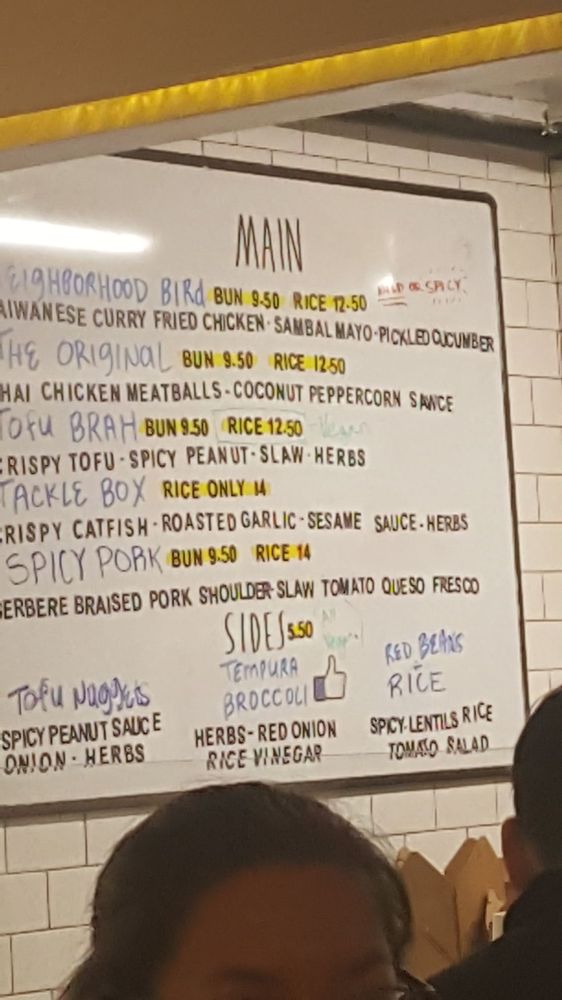 MAIN
EIGHBORHOOD BIRd BUN 9.50 RICE 12.50 MILD OR SPICY
AIWANESE CURRY FRIED CHICKEN · SAMBAL MAYO · PICKLED CUCUMBER
THE ORIGINAL BUN 9.50 RICE 12.50
HAI CHICKEN MEATBALLS - COCONUT PEPPERCORN SAUCE
TOFU BRAH BUN 9.50 RICE 12.50 - Vegan
CRISPY TOFU · SPICY PEANUT · SLAW · HERBS
TACKLE BOX RICE ONLY 14
CRISPY CATFISH · ROASTED GARLIC · SESAME SAUCE · HERBS
SPICY PORK BUN 9.50 RICE 14
BERBERE BRAISED PORK SHOULDER · SLAW TOMATO QUESO FRESCO
SIDES 5.50 All Vegan
TOFU NuggEts
SPICY PEANUT SAUCE
ONION · HERBS
TEMPURA
BROCCOLI
HERBS - RED ONION
RICE VINEGAR
RED BEANS
+
RICE
SPICY · LENTILS RICE
TOMATO SALAD